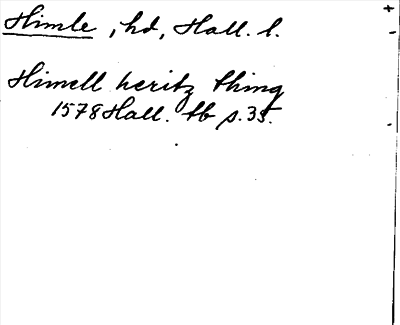 Himle, hd, Hall. l.
Himell heritz thing
1578 Hall. tb s. 35.